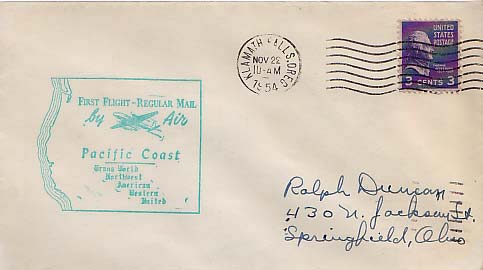 UNITED STATES
POSTAGE
3 CENTS 3
KLAMATH FALLS, OREG.
NOV 22
10-AM
1954
FIRST FLIGHT-REGULAR MAIL
by Air
Pacific Coast
Trans World
Northwest
American
Western
United
Ralph Duncan
430 N. Jackson St.
Springfield, Ohio